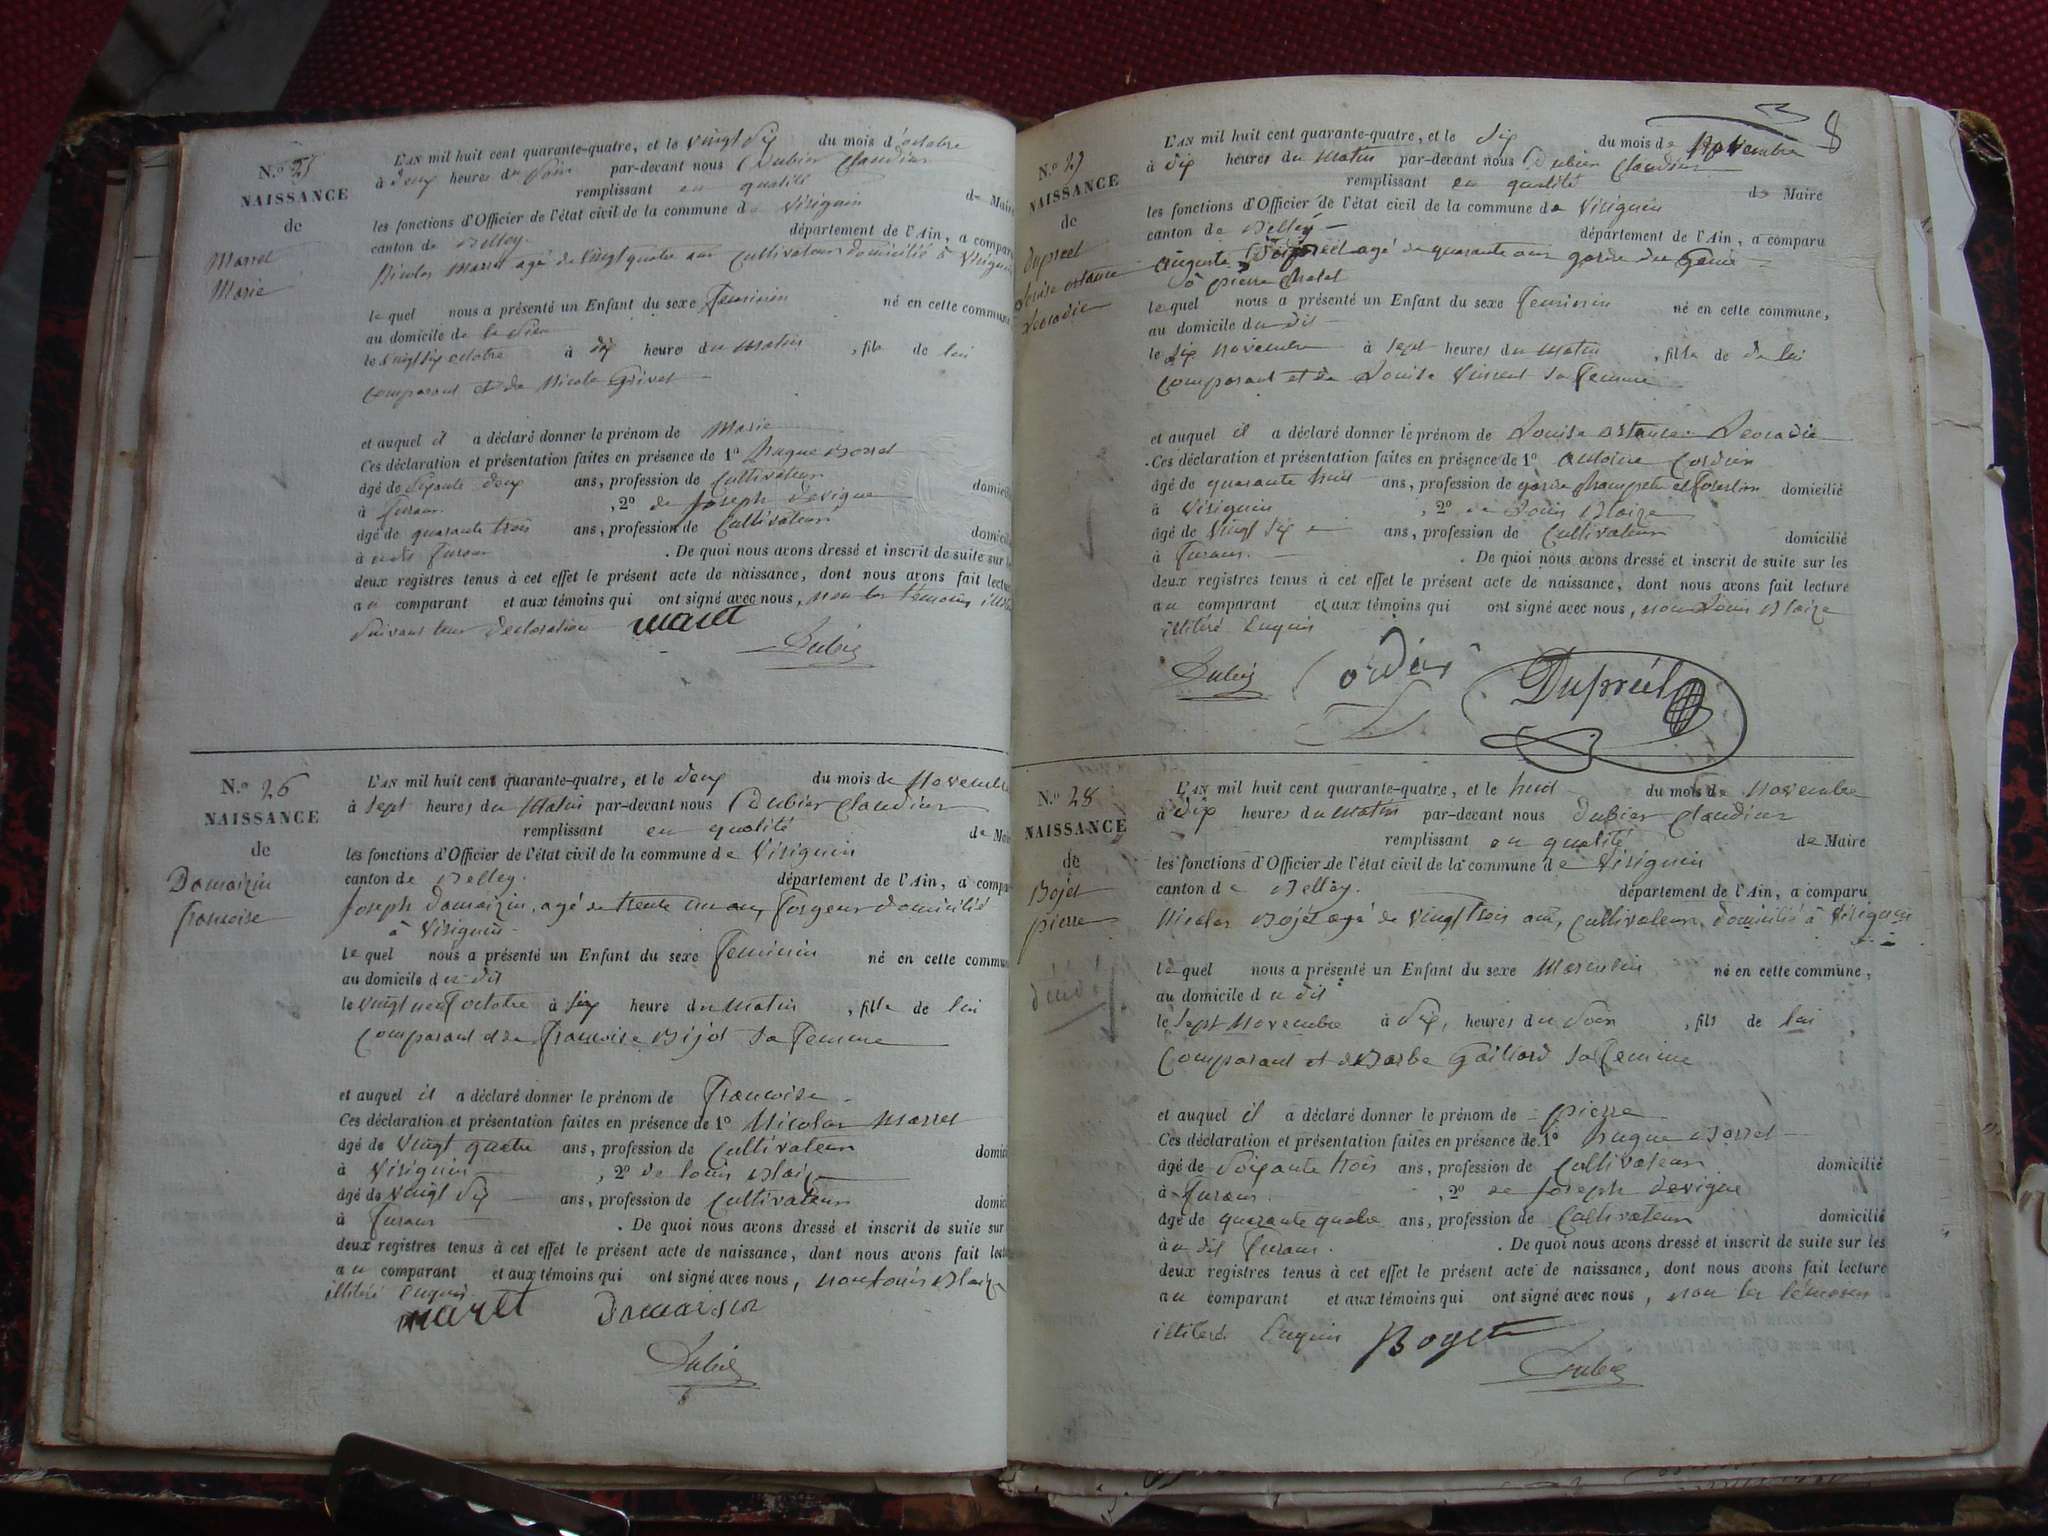 N.º 25
NAISSANCE
de
Marret
Marie
L'AN mil huit cent quarante-quatre, et le vingt six du mois d'octobre
à deux heures du soir par-devant nous Dubier Claudius
remplissant en qualité de Maire
les fonctions d'Officier de l'état civil de la commune de Virignin
canton de Belley. département de l'Ain, a comparu
Nicolas Marret agé de vingt quatre ans cultivateur domicilié à Virignin
lequel nous a présenté un Enfant du sexe feminin né en cette commune
au domicile de
le vingt six octobre à dix heures du matin, fille de lui
comparant et de Nicole Grivet
et auquel il a déclaré donner le prénom de Marie
Ces déclaration et présentation faites en présence de 1º hugue
âgé de soixante deux ans, profession de cultivateur domicilié
à furans, 2º de joseph devigne
âgé de quarante trois ans, profession de Cultivateur domicilié
à furans. De quoi nous avons dressé et inscrit de suite sur les
deux registres tenus à cet effet le présent acte de naissance, dont nous avons fait lecture
au comparant et aux témoins qui ont signé avec nous, non les témoins
suivant leur declaration maret
Dubier
N.º 26
NAISSANCE
de
Domaizin
francoise
L'AN mil huit cent quarante-quatre, et le deux du mois de Novembre
à sept heures du matin par-devant nous Dubier Claudius
remplissant en qualité de Maire
les fonctions d'Officier de l'état civil de la commune de Virignin
canton de Belley. département de l'Ain, a comparu
joseph Domaizin, agé de trente un an, forgeur domicilié
à Virignin
lequel nous a présenté un Enfant du sexe feminin né en cette commune
au domicile du dit
le vingt neuf octobre à six heure du matin, fille de lui
comparant et de francoise Bijot sa femme
et auquel il a déclaré donner le prénom de francoise
Ces déclaration et présentation faites en présence de 1º Nicolas Marret
âgé de vingt quatre ans, profession de Cultivateur domicilié
à Virignin, 2º de louis Blaize
âgé de vingt six ans, profession de Cultivateur domicilié
à furans. De quoi nous avons dressé et inscrit de suite sur
deux registres tenus à cet effet le présent acte de naissance, dont nous avons fait lecture
au comparant et aux témoins qui ont signé avec nous, non louis Blaize
illitéré enquis
maret Domaison
Dubier
8
N.º 27
NAISSANCE
de
Dupreel
Louise
Leocadie
L'AN mil huit cent quarante-quatre, et le six du mois de Novembre
à dix heures du matin par-devant nous Dubier Claudius
remplissant en qualité de Maire
les fonctions d'Officier de l'état civil de la commune de Virignin
canton de Belley département de l'Ain, a comparu
Auguste Dupreel agé de quarante ans garde du Génie
à pierre chatel
lequel nous a présenté un Enfant du sexe feminin né en cette commune,
au domicile du dit
le six novembre à sept heures du matin, fille de de lui
comparant et de Louise Vincent sa femme
et auquel il a déclaré donner le prénom de Louise Leocadie
Ces déclaration et présentation faites en présence de 1º Antoine Cordier
âgé de quarante huit ans, profession de garde champetre et forestier domicilié
à Virignin, 2º de Louis Blaize
âgé de vingt six ans, profession de Cultivateur domicilié
à furans. De quoi nous avons dressé et inscrit de suite sur les
deux registres tenus à cet effet le présent acte de naissance, dont nous avons fait lecture
au comparant et aux témoins qui ont signé avec nous, non Louis Blaize
illitéré enquis
Dubier Cordier Dupréel
N.º 28
NAISSANCE
de
Bojet
pierre
L'AN mil huit cent quarante-quatre, et le huit du mois de Novembre
à dix heures du matin par-devant nous Dubier Claudius
remplissant en qualité de Maire
les fonctions d'Officier de l'état civil de la commune de Virignin
canton de Belley. département de l'Ain, a comparu
Nicolas Bojet agé de vingt trois ans, cultivateur, domicilié à Virignin
lequel nous a présenté un Enfant du sexe Masculin né en cette commune,
au domicile du dit
le sept Novembre à dix, heures du soir, fils de lui
comparant et de Barbe Gaillard sa femme
et auquel il a déclaré donner le prénom de pierre
Ces déclaration et présentation faites en présence de 1º hugue
âgé de soixante trois ans, profession de Cultivateur domicilié
à furans., 2º de joseph devigne
âgé de quarante quatre ans, profession de Cultivateur domicilié
au dit furans. De quoi nous avons dressé et inscrit de suite sur les
deux registres tenus à cet effet le présent acte de naissance, dont nous avons fait lecture
au comparant et aux témoins qui ont signé avec nous, non les témoins
illitérés enquis Boget
Dubier